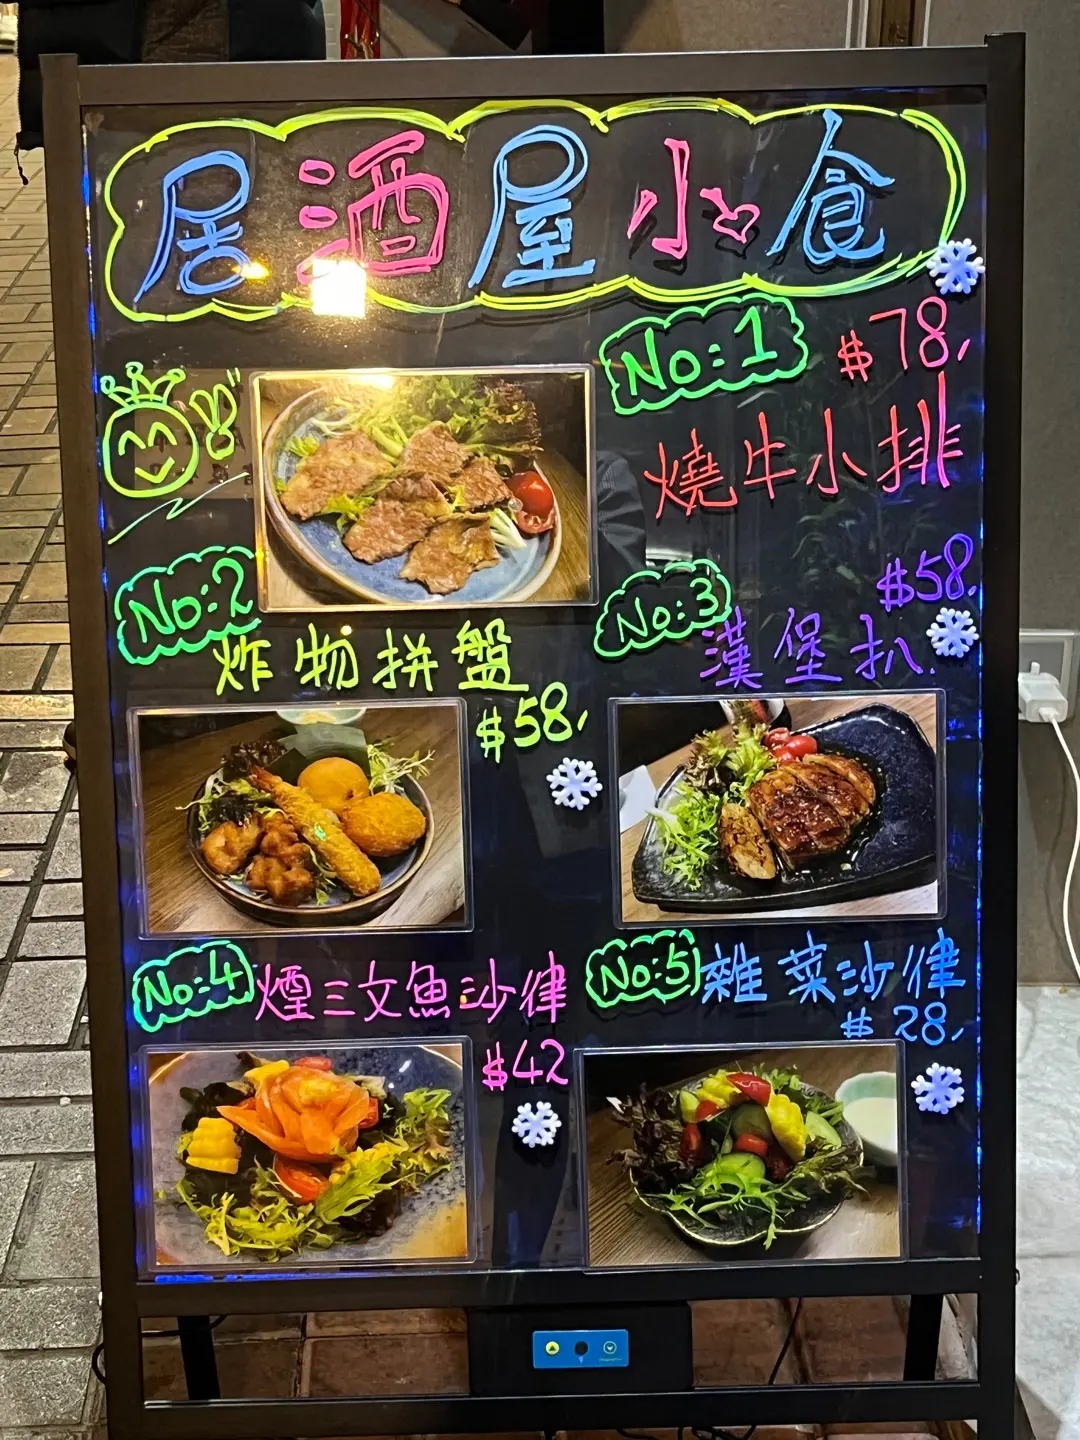 居酒屋小食
No:1 $78,
燒牛小排
No:2
炸物拼盤
$58,
No:3 $58,
漢堡扒
No:4 煙三文魚沙律
$42
No:5 雜菜沙律
$28,